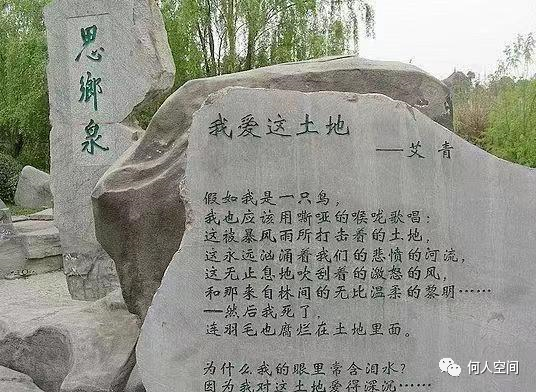 思鄉泉
我爱这土地
——艾青
假如我是一只鸟，
我也应该用嘶哑的喉咙歌唱：
这被暴风雨所打击着的土地，
这永远汹涌着我们的悲愤的河流，
这无止息地吹刮着的激怒的风，
和那来自林间的无比温柔的黎明……
——然后我死了，
连羽毛也腐烂在土地里面。
为什么我的眼里常含泪水？
因为我对这土地爱得深沉……
何人空间